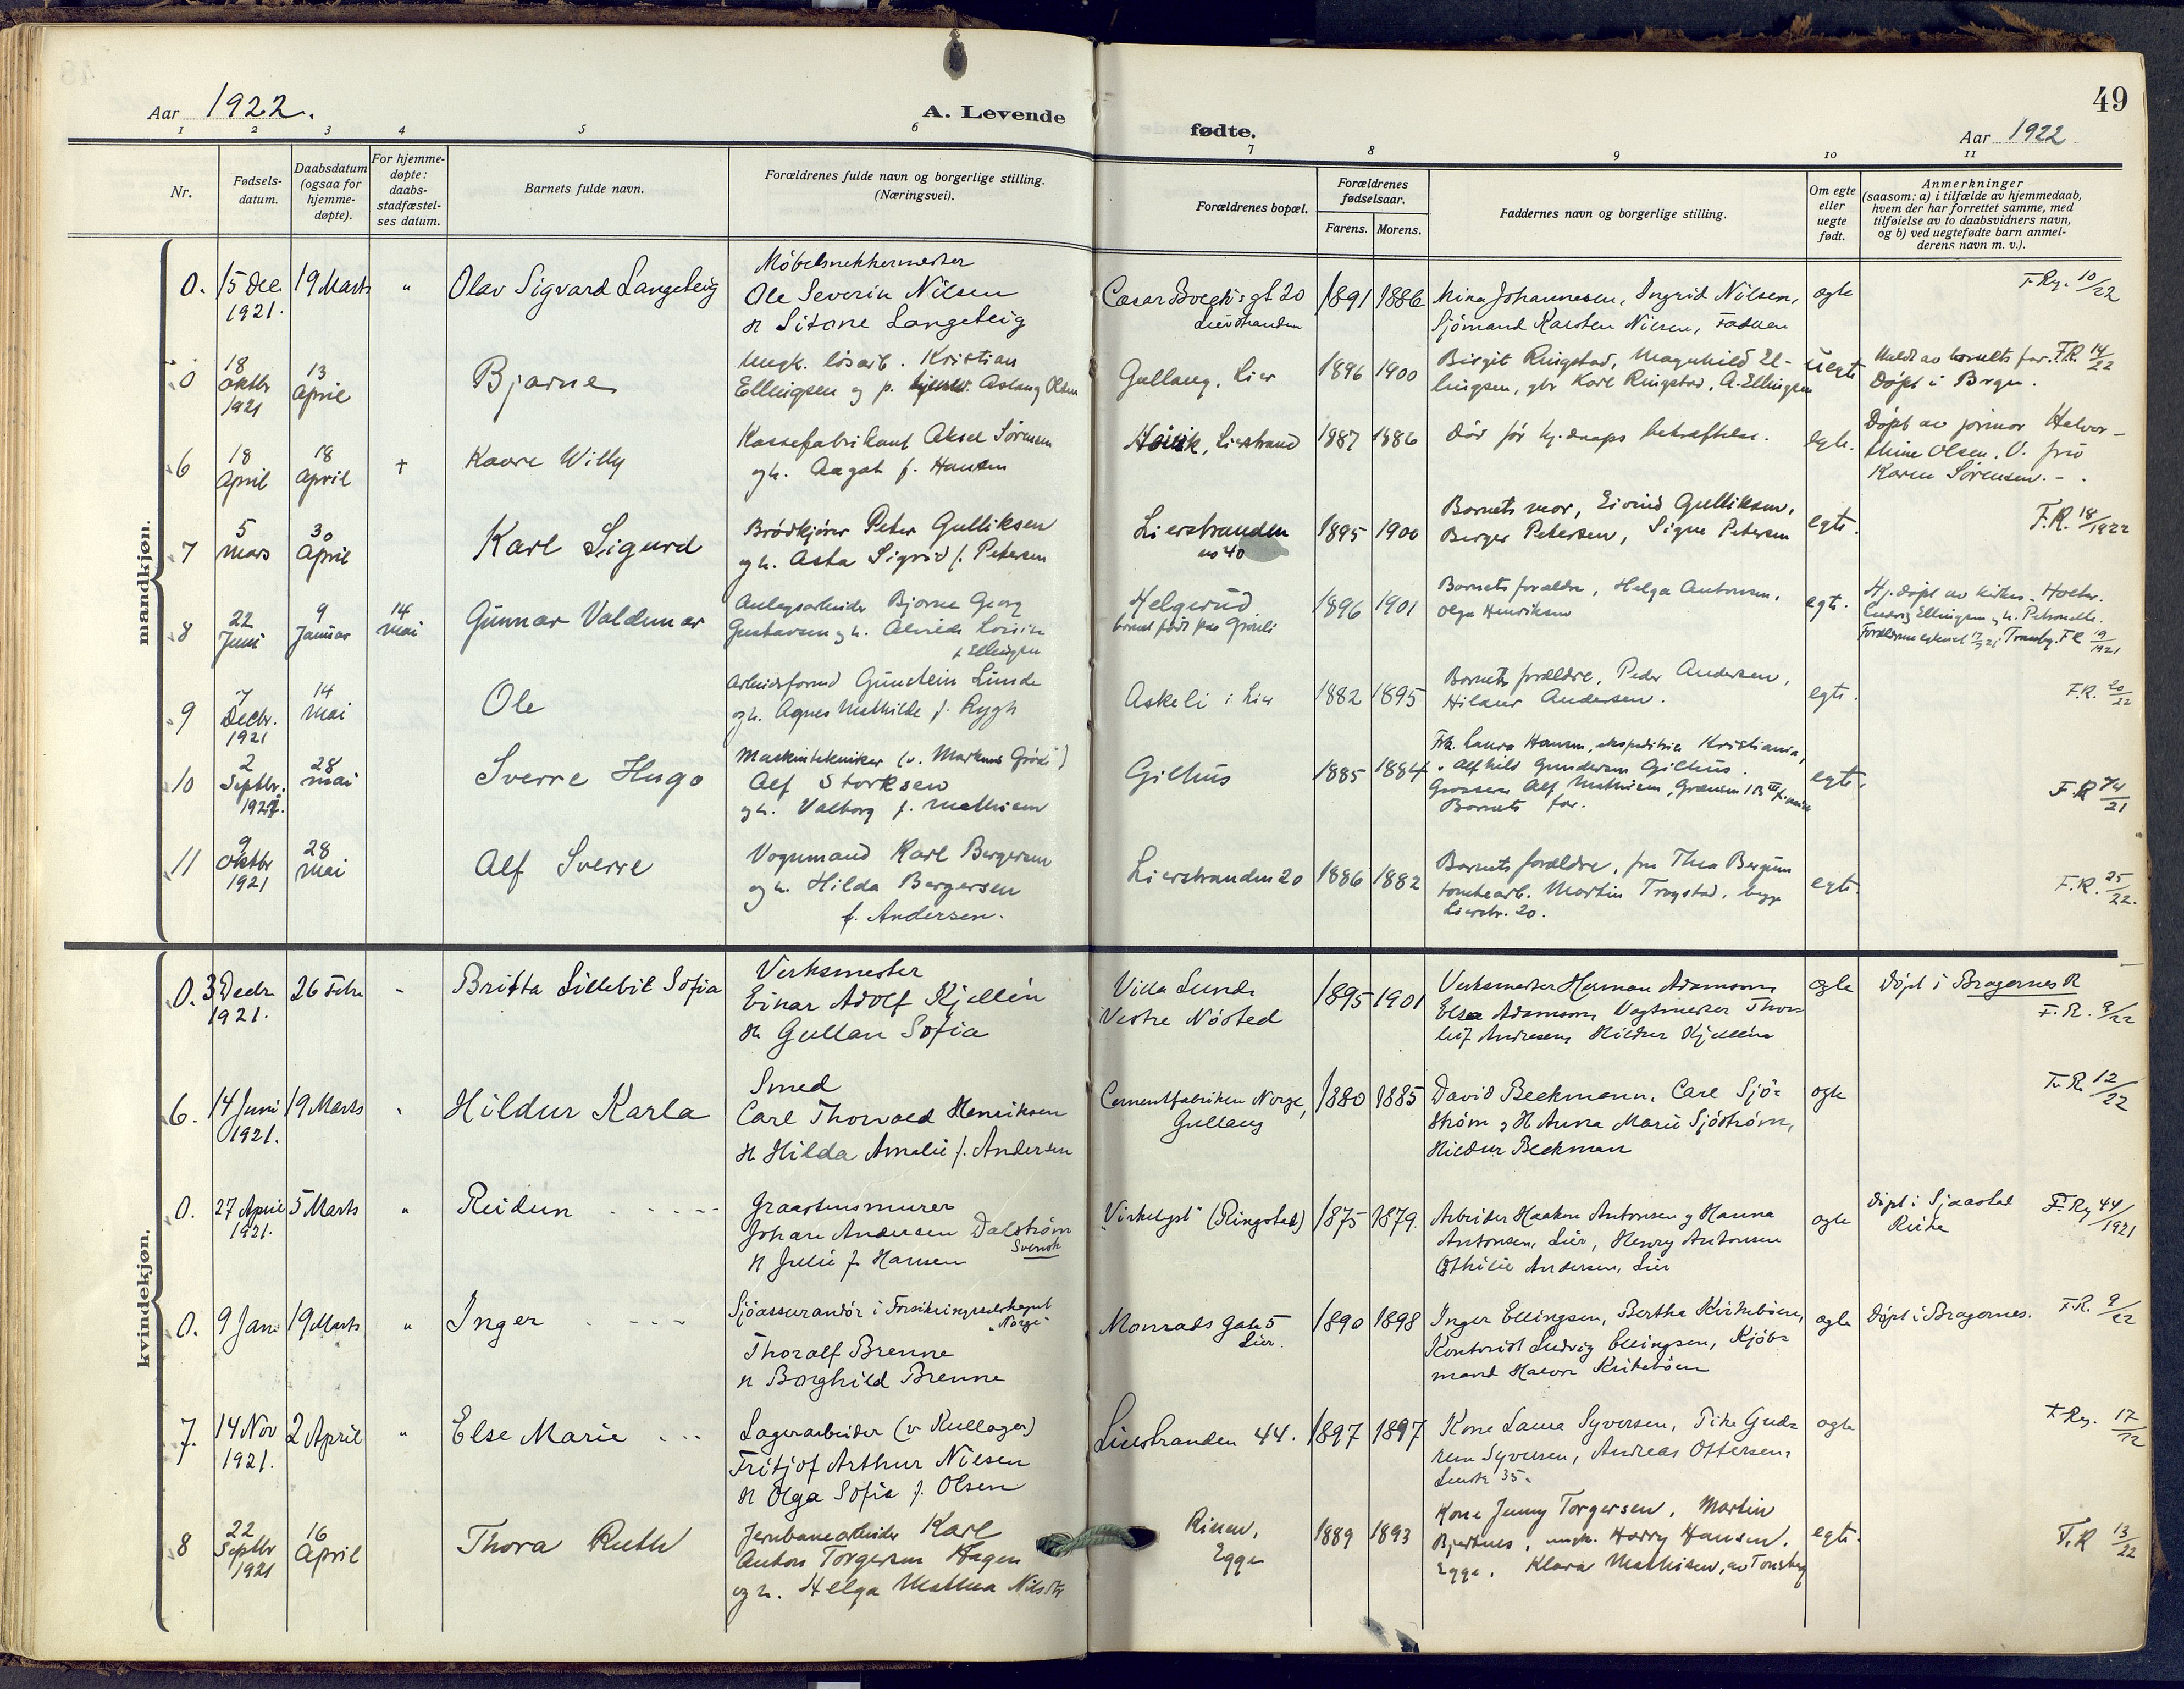 49
Aar 1922.
A. Levende
fødte.
Aar 1922
1 2 3 4 5 6 7 8 9 10 11
Nr.
Fødsels-
datum.
Daabsdatum
(ogsaa for
hjemme-
døpte).
For hjemme-
døpte:
daabs-
stadfæstel-
ses datum.
Barnets fulde navn.
Forældrenes fulde navn og borgerlige stilling.
(Næringsvei).
Forældrenes bopæl.
Forældrenes
fødselsaar.
Farens. Morens.
Faddernes navn og borgerlige stilling.
Om egte
eller
uegte
født.
Anmerkninger
(saasom: a) i tilfælde av hjemmedaab,
hvem der har forrettet samme, med
tilføielse av to daabsvidners navn,
og b) ved uegtefødte barn anmel-
derens navn m. v.).
mandkjøn.
0.
15 Dec
1921.
19 Marts
"
Olav Sigvard Langeteig
Møbelsnekkermester
Ole Severin Nilsen
H Sitone Langeteig
gt 20
Lierstranden
1891
1886
Mina Johannesen, Ingrid Nilsen,
Sjømand Karsten Nilsen, Faderen
egte
F.Reg. 10/22
0
18
oktbr
1921
13
April
Bjarne
Ungk. løsarb. Kristian
Ellingsen og p. Aslaug Olsen
Gullaug, Lier
1896
1900
Birgit Ringstad, Magnhild El-
lingsen, gbr Karl Ringstad, A. Ellingsen
uegte
Meldt av barnets far. F.R. 14/22
Døpt i Brgn.
6
18
April
18
April
+
Kaare Willy
Kassefabrikant Aksel Sørensen
og h. Aagot f. Hansen
Høvik, Lierstrand
1887
1886
Død før hj.daaps bekræftelse.
egte.
Døpt av jormor Halvor-
thine Olsen. V. frú
Karen Sørensen. -
7
5
mars
30
April
Karl Sigurd
Brødkjører Peter Gulliksen
og h. Asta Sigrid f. Petersen
Lierstranden
no 40
1895
1900
Barnets mor, Eivind Gulliksen,
Berger Petersen, Signe Petersen
egte.
F.R. 18/1922
8
22
Juni
9
Januar
14
mai
Gunnar Valdemar
Anlegsarbeider Bjarne Georg
Gustavsen og h. Alvilde Lovise
f. Ellingsen
Helgerud
barnet født paa
1896
1901
Barnets forældre, Helga Antonsen,
Olga Henriksen
egte.
Hj.døpt av
Ludvig Ellingsen og h. Petronelle.
Tranby. F.R. 19/1921
9
7
Decbr.
1921
14
mai
Ole
Arbeidsformd Gunstein Linde
og h. Agnes Mathilde f. Rygh
Askeli i Lier
1882
1895
Barnets forældre, Peder Andersen,
Hilmer Andersen.
egte.
F.R. 20/22
10
2
Septbr.
28
mai
Sverre Hugo
Maskintekniker
Alf Storksen
og h. Valborg f. Mathisen
Gilhus
1885
1884
Frk. Laura Hansen, ekspeditrice Kristiania,
" Alfhild Gundersen Gilhus.
Grosserer Alf Mathisen,
Barnets far.
egte.
F.R 74/21
11
9
Oktbr
1921
28
mai
Alf Sverre
Vognmand Karl Bergersen
og h. Hilda Bergersen
f. Andersen.
Lierstranden 20
1886
1882
Barnets forældre, fru Thea Bergum
tomtearb. Martin Trøgstad, begge
Lierstr. 20.
egte.
F.R. 25/22.
kvindekjøn.
0.
3 Decbr
1921.
26 Febr
"
Britta Lillebil Sofia
Verksmester
Einar Adolf Kjellén
H Gullan Sofia
Villa Lunde
Vestre Nøsted
1895
1901
Verksmester Herman Adamsson,
Elsa Adamsson, Vagtmester Thor-
leif Andresen, Hildur Kjellén
egte
Døpt i Bragernes K
F.R. 9/22
6.
14 Juni
1921.
19 Marts
"
Hildur Karla
Smed
Carl Thorvald Henriksen
H Hilda Amalie f. Andersen
Cementfabriken Norge,
Gullaug
1880
1885
David Beckmann, Carl Sjö-
ström og H Anna Marie Sjöström,
Hildur Beckman
egte
F.R. 12/22
0.
27 April
1921.
5 Marts
"
Reidun
Graastensmurer
Johan Andersen Dalström
Svensk
H Julie f. Hansen
"Virkelyst" (Ringstad)
1875
1879.
Arbeider Haakon Antonsen og Hanna
Antonsen, Lier, Henry Antonsen
Othilie Andersen, Lier
egte
Døpt i Sjaastad
Kirke
F.Reg 44/1921
0.
9 Jan
19 Marts
"
Inger
Sjøassurandør i Forsikringsselskapet
"Norge"
Thoralf Brenne
H Borghild Brenne
Monrads gate 5
Lier.
1890
1898
Inger Ellingsen, Bertha Kirkebøen,
Kontorist Ludvig Ellingsen, Kjøb-
mand Halvor Kirkebøen
egte
Døpt i Bragernes.
F.R. 9/22
7.
14 Nov
1921.
2 April
"
Else Marie
Lagerarbeider (v Kullager)
Fritjof Arthur Nilsen
H Olga Sofie f. Olsen
Lierstranden 44.
1897
1897
Kone Laura Syversen, Pike Gud-
run Syversen, Andreas Ottersen,
Lierstr 35.
egte
F.Reg. 17/22
8
22
Septbr
1921
16
April
Thora Ruth
Jernbanearbeider Karl
Anton Torgersen Hagen
og h. Helga Mathea Nilsdtr
Egge
1889
1893
Kone Jenny Torgersen, Martin
Bjertnes, ungk. Harry Hansen,
Egge. Klara Mathisen, av Tønsberg
egte.
F.R 13/22